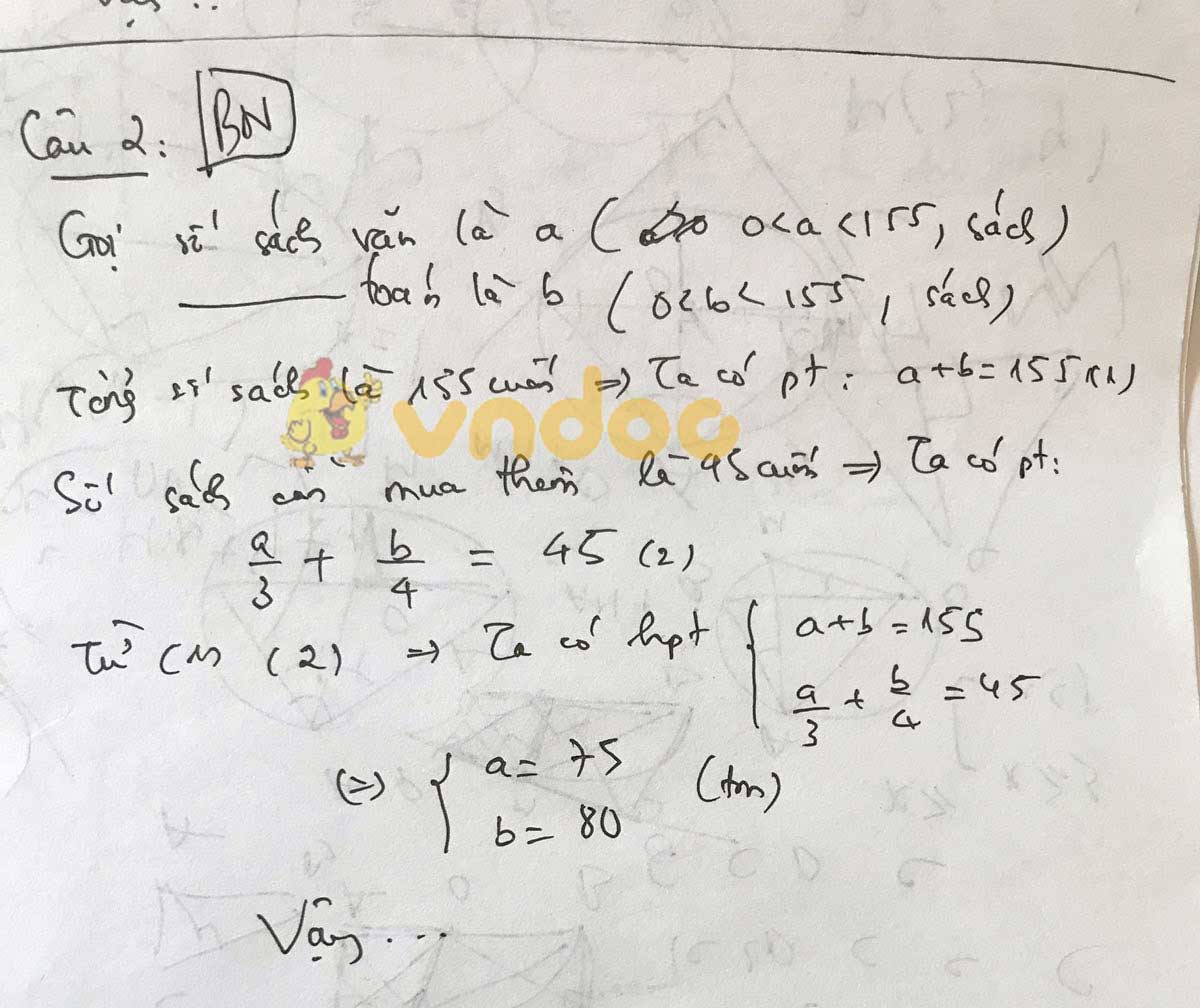 Câu 2: BN
Gọi số sách văn là a ( 0<a<155, sách)
toán là b (0<b<155, sách)
Tổng số sách là 155 cuốn => Ta có pt: a+b=155 (1)
vndoc
Số sách cần mua thêm là 45 cuốn => Ta có pt:
a/3 + b/4 = 45 (2)
Từ (1) (2) => Ta có hpt { a+b=155
a/3 + b/4 = 45
(=) { a= 75 (tm)
b= 80
Vậy...